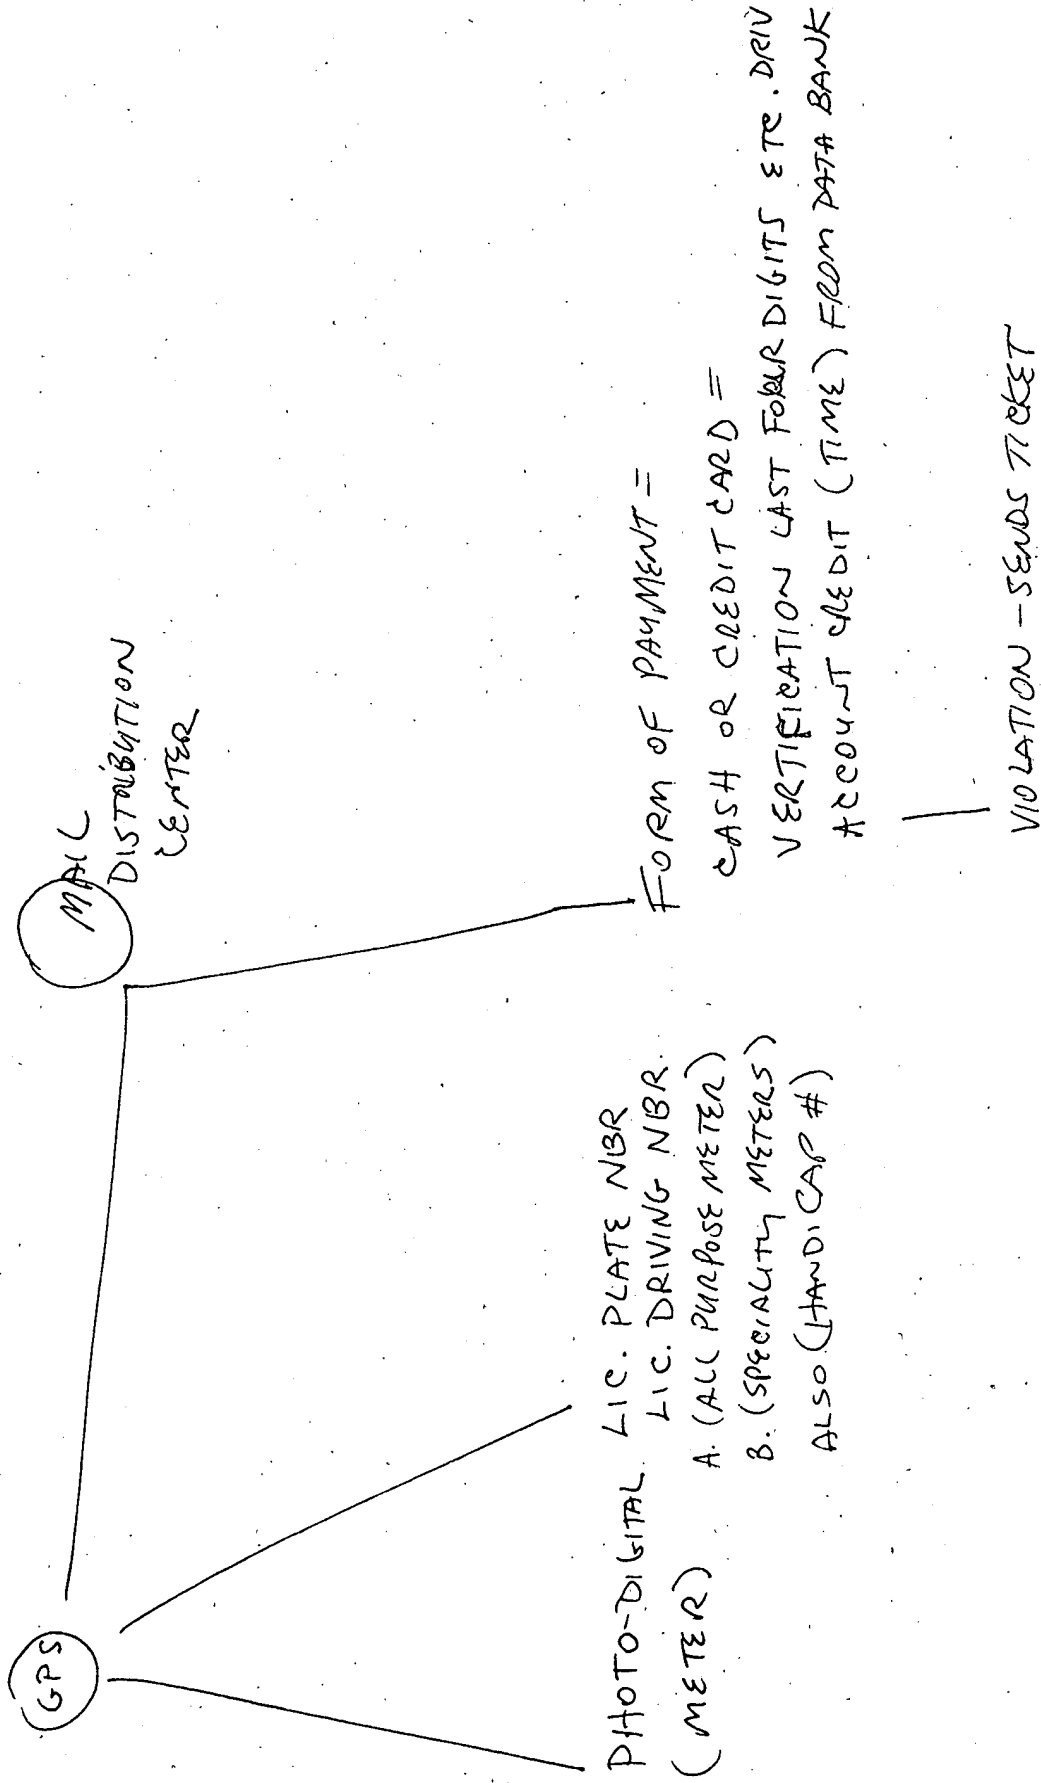 GPS
MAIL
DISTRIBUTION
CENTER
PHOTO-DIGITAL
(METER)
LIC. PLATE NBR
LIC. DRIVING NBR.
A. (ALL PURPOSE METER)
B. (SPECIALITY METERS)
ALSO (HANDICAP #)
FORM OF PAYMENT =
CASH OR CREDIT CARD =
VERTIFICATION LAST FOUR DIGITS ETC. DRIV
ACCOUNT CREDIT (TIME) FROM DATA BANK
VIOLATION - SENDS TICKET